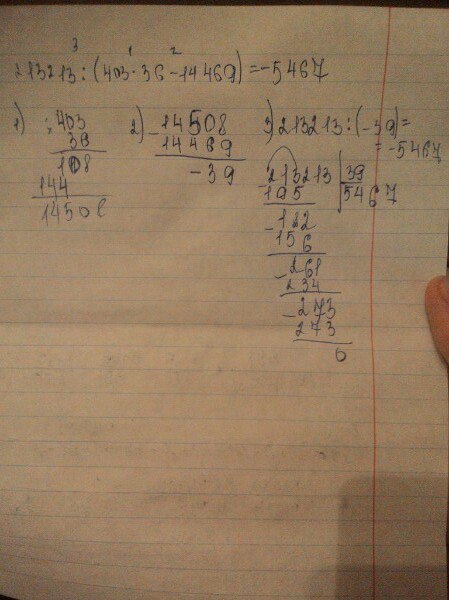 3 1 2
213213:(403·36-14469)=-5467
1) 403
36
108
144
14508
2) -14508
14469
-39
3) 213213:(-39)=
=-5467
213213 39
195 5467
-182
156
-261
234
-273
273
0